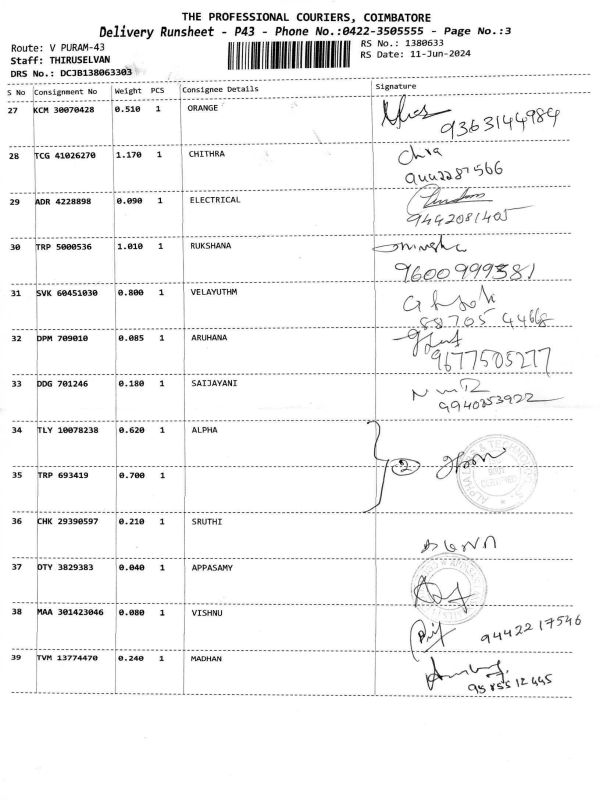 THE PROFESSIONAL COURIERS, COIMBATORE
Delivery Runsheet - P43 - Phone No.:0422-3505555 - Page No.:3
Route: V PURAM-43
RS No.: 1380633
Staff: THIRUSELVAN
RS Date: 11-Jun-2024
DRS No.: DCJB138063303
S No Consignment No Weight PCS Consignee Details Signature
27 KCM 30070428 0.510 1 ORANGE
9363144984
28 TCG 41026270 1.170 1 CHITHRA
9442287566
29 ADR 4228898 0.090 1 ELECTRICAL
9442081405
30 TRP 5000536 1.010 1 RUKSHANA
9600999381
31 SVK 60451030 0.800 1 VELAYUTHM
887054466
32 DPM 709010 0.085 1 ARUHANA
9677505277
33 DDG 701246 0.180 1 SAIJAYANI
9940253922
34 TLY 10078238 0.620 1 ALPHA
2
35 TRP 693419 0.700 1
36 CHK 29390597 0.210 1 SRUTHI
37 OTY 3829383 0.040 1 APPASAMY
38 MAA 301423046 0.080 1 VISHNU
9442217546
39 TVM 13774470 0.240 1 MADHAN
9585512445